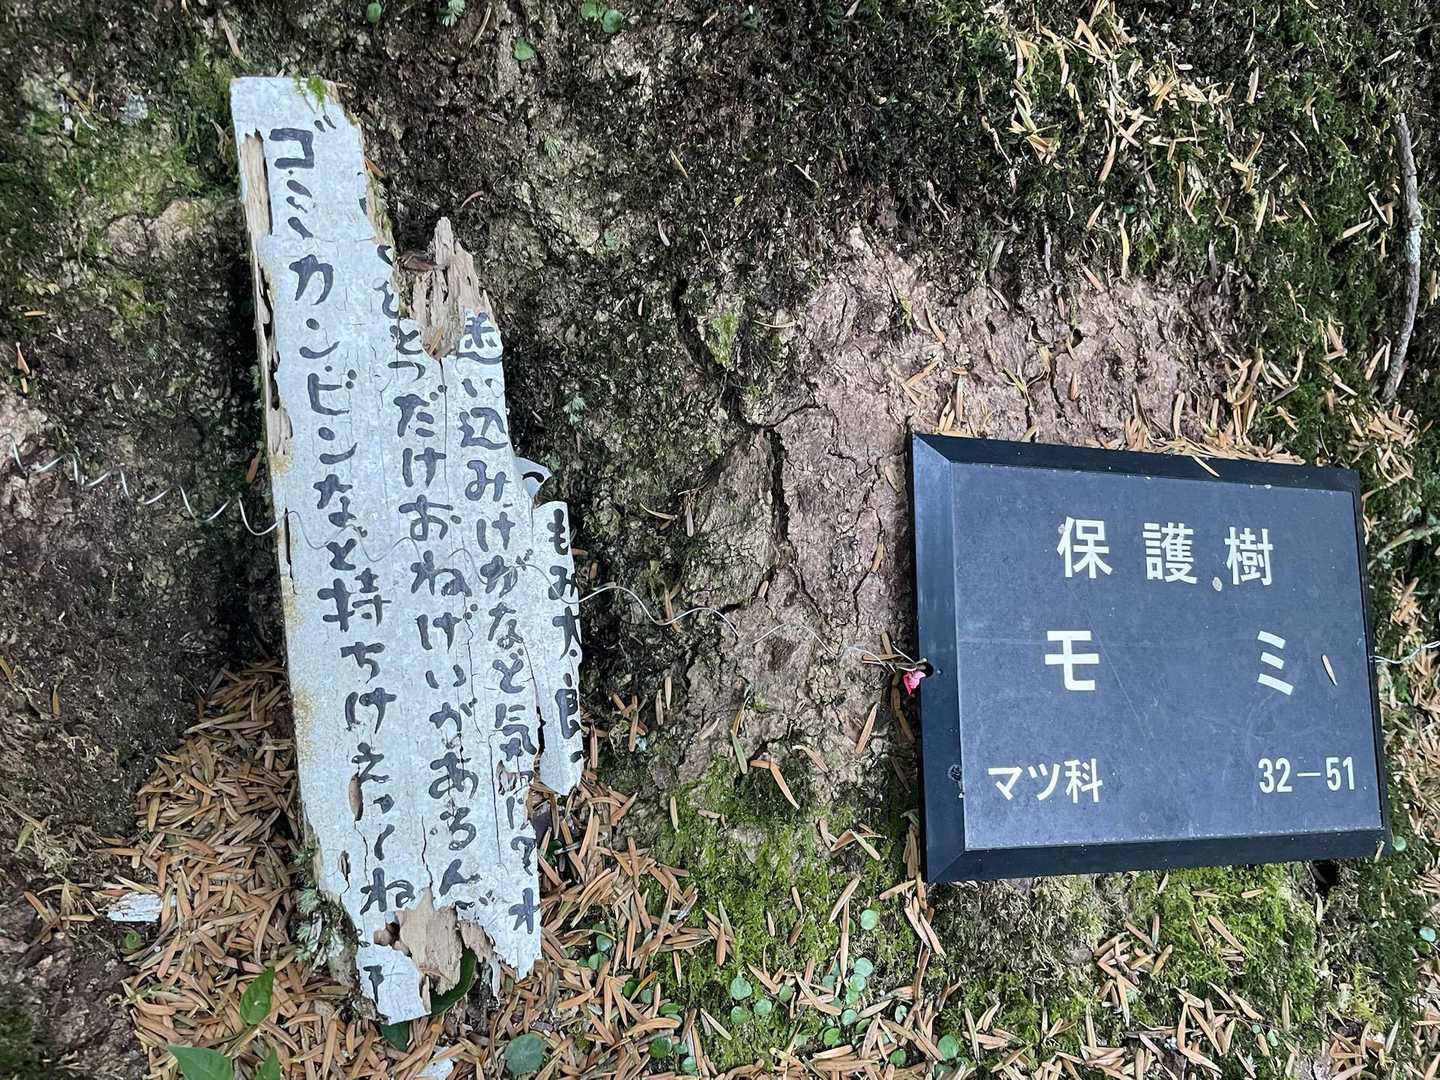 ゴミカンビンなど持ちけえってね
つだけおねげいがあるん
い込みけがなど気
もみ太良
保護樹
モミ
マツ科 32-51